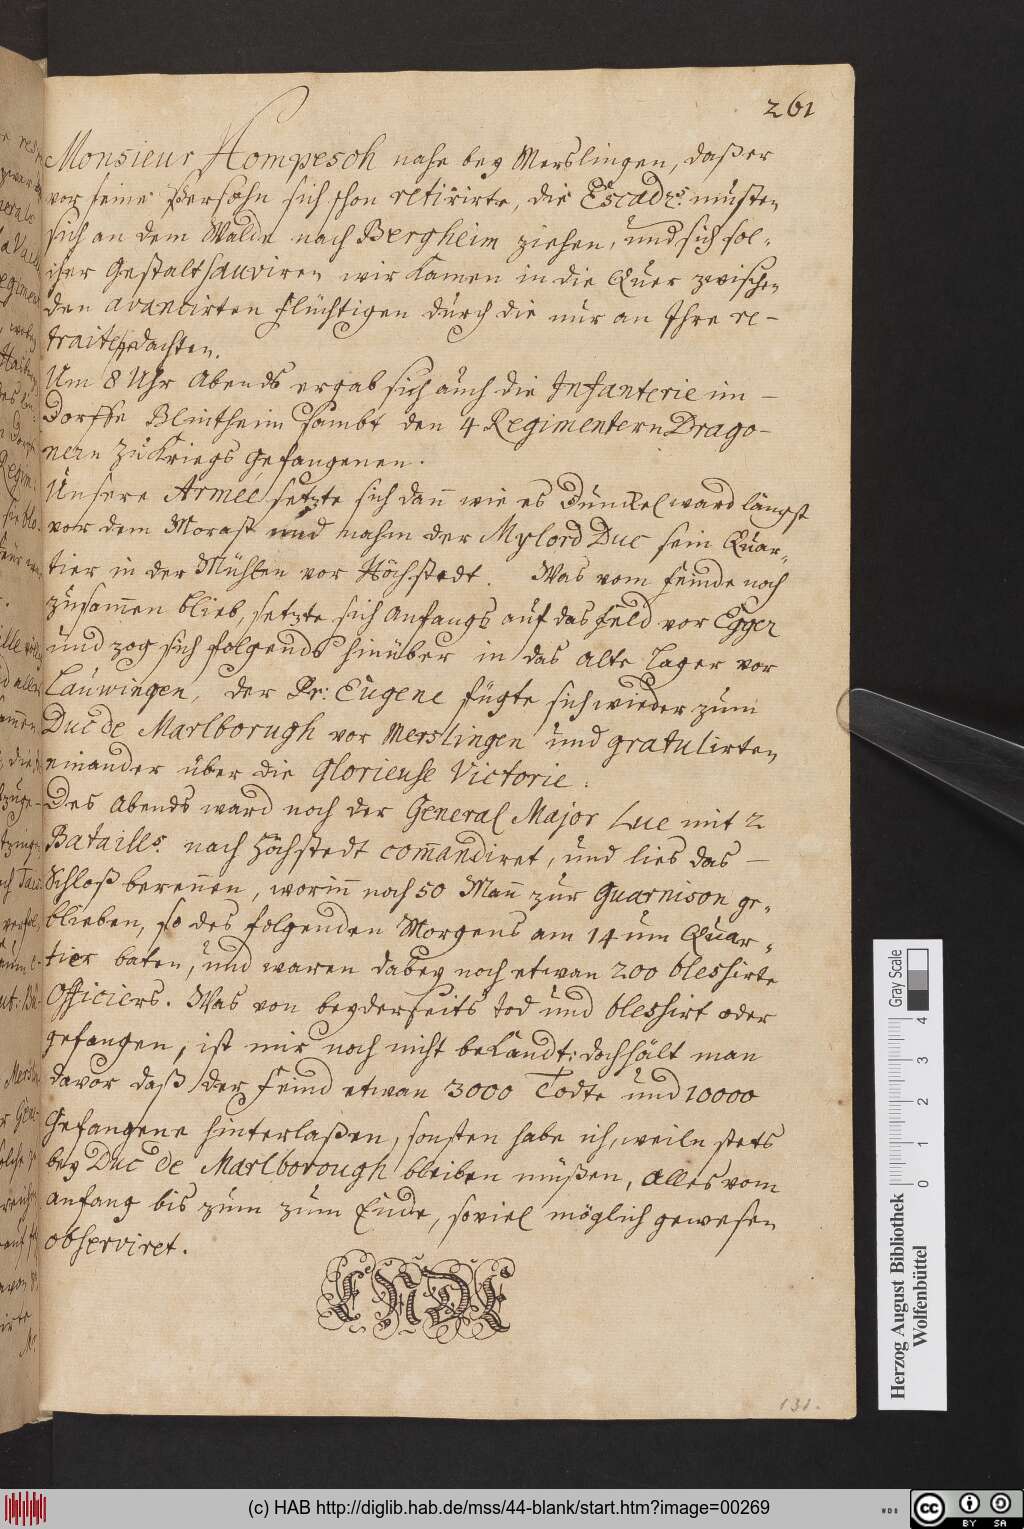 261
Monsieur Hompesch nahe bey Merslingen, daß er
vor seine Persohn sich schon retirirte, die Escadr: müsten
sich an dem Walde nach Bergheim ziehen, und sich sol-
cher Gestalt sauviren wir kamen in die Quer zwischen
den avancirten Flüchtigen durch die nur an Ihre re-
traite gedachten.
Um 8 Uhr Abends ergab sich auch die Infanterie im
Dorffe Blintheim sambt den 4 Regimentern Drago-
nern zu Kriegs gefangenen.
Unsere Armée setzte sich dañ wie es Dunckel ward längst
vor dem Morast und nahm der Mylord Duc sein Quar-
tier in der Mühlen vor Höchstedt. Was vom Feinde noch
zusam̃en blieb, setzte sich anfangs auf das Feld vor Egger
und zog sich folgends hinüber in das alte Lager vor
Lauwingen, der Pr: Eugene fügte sich wieder zum
Duc de Marlborugh vor Merslingen und gratulirten
einander über die Glorieuse Victorie.
Des Abends ward noch der General Major Luc mit 2
Bataills. nach Höchstedt com̃andiret, und lies das
Schloß bereñen, woriñ noch 50 Mañ zur Guarnison ge-
blieben, so des folgenden Morgens am 14 um Quar-
tier baten, und waren dabey noch etwan 200 blessirte
Officiers. Was von beyderseits tod und blessirt oder
gefangen, ist mir noch nicht bekandt: doch hält man
davor daß der Feind etwan 3000 Todte und 10000
Gefangene hinterlaßen, sonsten habe ich, weiln stets
bey Duc de Marlborough bleiben müßen, alles vom
anfang bis zum zum Ende, soviel möglich gewesen
observiret.
ENDE
131.
Herzog August Bibliothek
Wolfenbüttel
Gray Scale
0 1 2 3 4
(c) HAB http://diglib.hab.de/mss/44-blank/start.htm?image=00269
WDB
cc BY SA